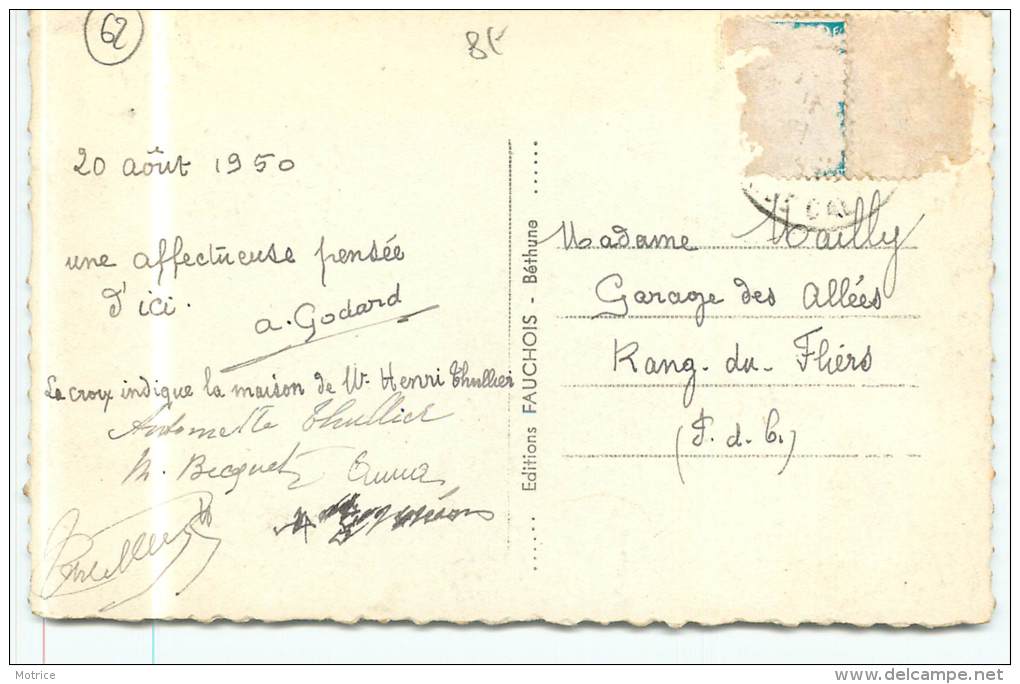 62
8€
20 août 1950
une affectueuse pensée
d'ici.
a. Godard
La croix indique la maison de Mr Henri Thullier
Antoinette Thullier
M. Becquet Emma
Editions FAUCHOIS - Béthune
Madame Mailly
Garage des Allées
Rang-du-Fliers
(P. d. C.)
Motrice
www.delcampe.net